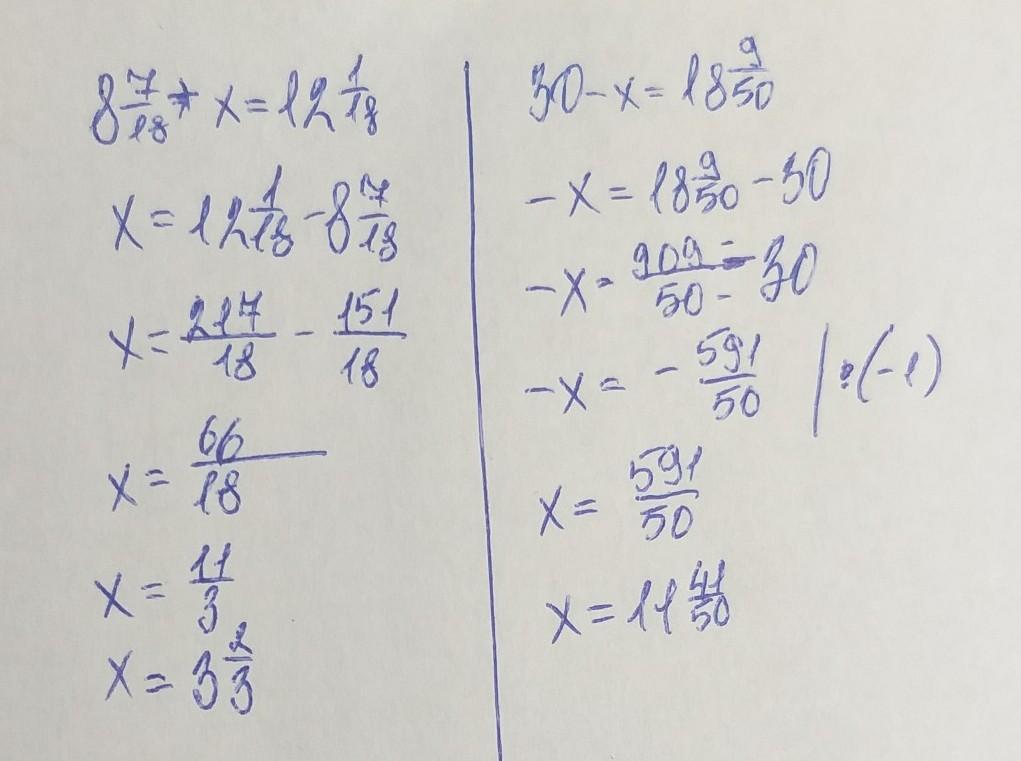 8 7/18 + x = 12 1/18
x = 12 1/18 - 8 7/18
x = 217/18 - 151/18
x = 66/18
x = 11/3
x = 3 2/3
30 - x = 18 9/50
-x = 18 9/50 - 30
-x = 909/50 - 30
-x = - 591/50 | :(-1)
x = 591/50
x = 11 41/50